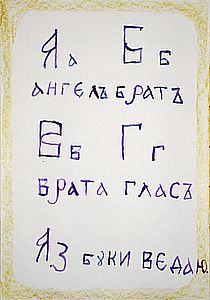 Я а Б б
АНГЕЛЪ БРАТЪ
В б Г г
БРАТА ГЛАСЪ
ЯЗ БУКИ ВЕДАЮ